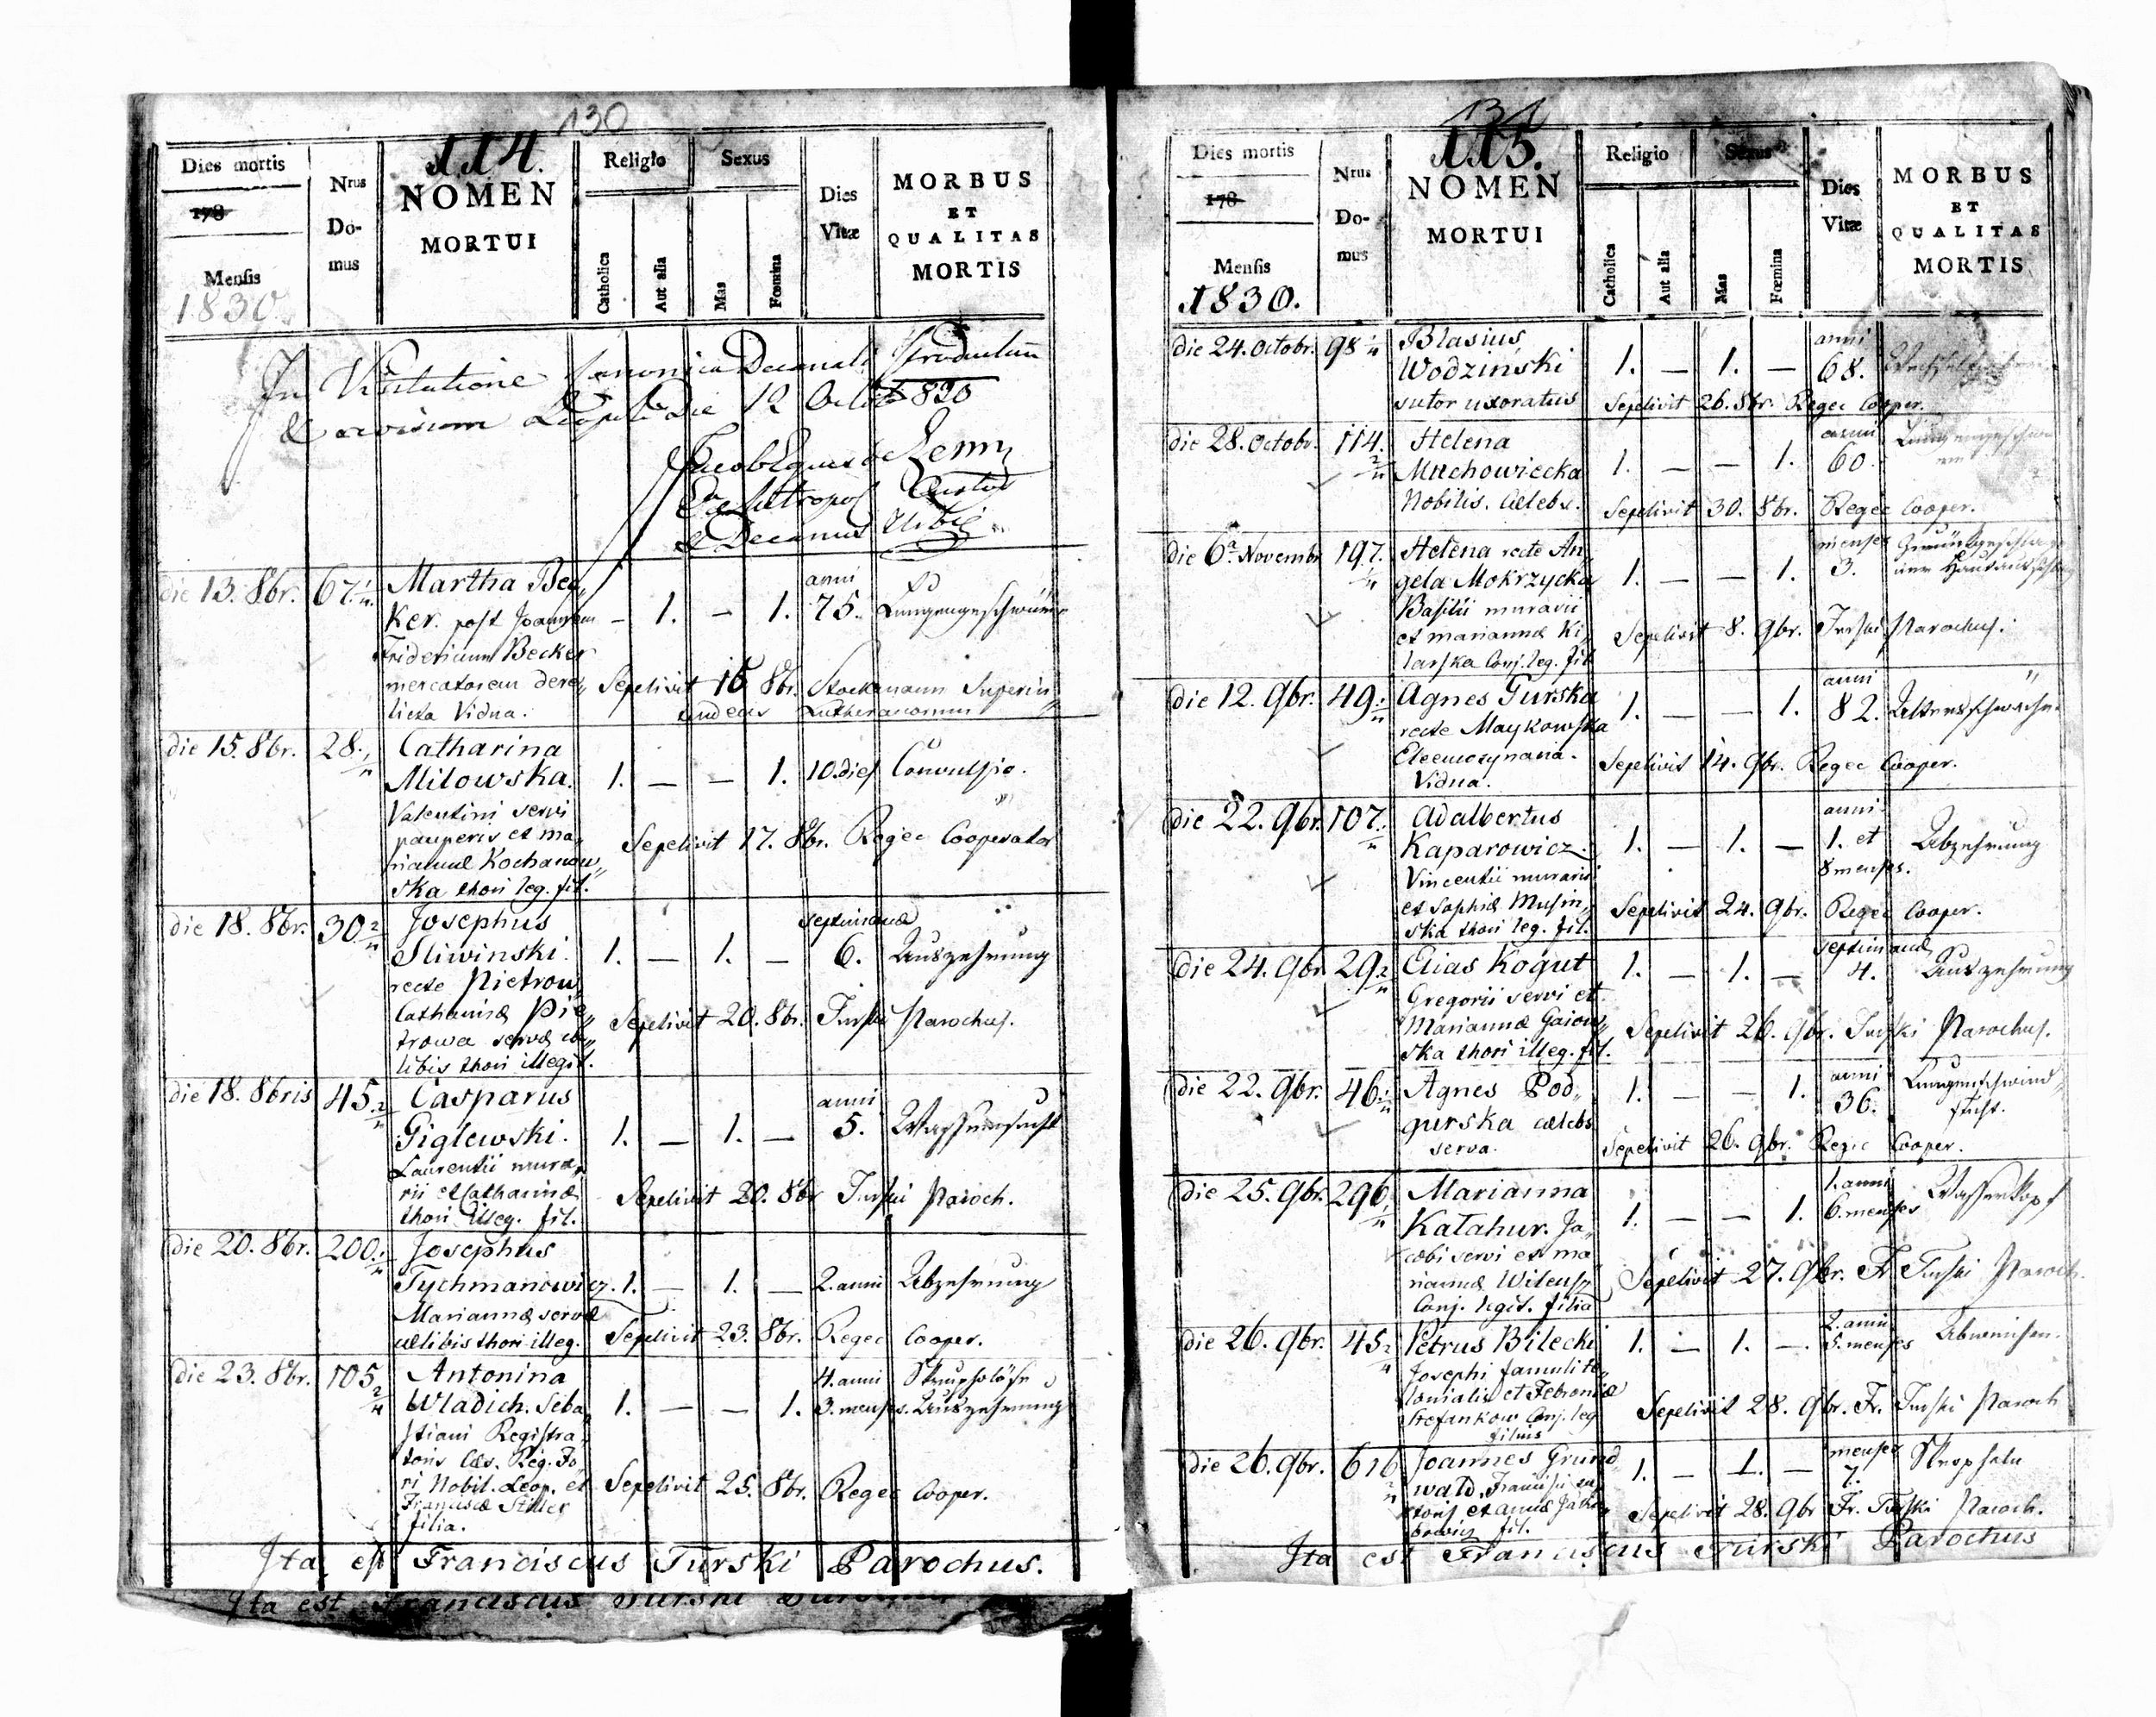 130
114.
Dies mortis
178
Mensis
1830
Nrus Domus
NOMEN
MORTUI
Religio
Catholica
Aut alia
Sexus
Mas
Fœmina
Dies Vitæ
MORBUS
ET
QUALITAS
MORTIS
In Visitatione Canonica Decanali productum
Leopoli die 12 Octob 1830
& Decanus Urbis
die 13. 8br. 67. Martha Bec„
ker. post Joannem — 1. — 1. anni 75. Lungengeschwür
Fridericum Becker
mercatorem dere„ Sepelivit 15 8br. Stockmann Superin„
licta Vidua. tendens Lutheranorum
die 15. 8br. 28. Catharina
Milowska. 1. — — 1. 10. dies Convulsio.
Valentini servi
pauperis et ma„ Sepelivit 17. 8br. Regec Cooperator
riannæ Kochanow„
ska thori leg. fil.
die 18. 8br. 30 Josephus
Sliwinski. 1. — 1. — septimanæ 6. Auszehrung
recte Pietrow„
Catharinæ Pie„ Sepelivit 20. 8br. Turski Parochus.
trowa servæ cæ„
libis thori illegit.
die 18. 8bris 45. Casparus
Giglewski. 1. — 1. — anni 5. Wassersucht
Laurentii mura„
rii et Catharinæ Sepelivit 20. 8br Turski Paroch.
thori illeg. fil.
die 20. 8br. 200. Josephus
Tychmanowicz. 1. — 1. — 2. anni Abzehrung
Mariannæ servæ
cælibis thori illeg. Sepelivit 23. 8br. Regec Cooper.
die 23. 8br. 105. Antonina 4. anni
Wladich. Seba„ 1. — — 1. 3. menses. Auszehrung
stiani Registra„
toris Cæs. Reg. Fo„
ri Nobil. Leop. et Sepelivit 25. 8br. Regec Cooper.
Franciscæ Stiller
filia.
Ita est Franciscus Turski Parochus.
Ita est Franciscus Turski
131
115.
Dies mortis
178
Mensis
1830.
Nrus Domus
NOMEN
MORTUI
Religio
Catholica
Aut alia
Sexus
Mas
Fœmina
Dies Vitæ
MORBUS
ET
QUALITAS
MORTIS
die 24. Octobr. 98 Blasius
Wodzinski 1. — 1. — anni 68.
sutor uxoratus Sepelivit 26. 8br. Regec Cooper.
die 28. Octobr. 114. Helena
Mrchowiecka 1. — — 1. anni 60.
Nobilis. Cælebs. Sepelivit 30. 8br. Regec Cooper.
die 6. Novembr 197. Helena recte An„
gela Mokrzycka 1. — — 1. menses 3.
Basilii murarii
et mariannæ Ki„ Sepelivit 8. 9br. Turski Parochus.
larska Conj. leg. fil
die 12. 9br. 49. Agnes Gurska
recte Maykowska 1. — — 1. anni 82. Altersschwäche
Eleemosynaria. Sepelivit 14. 9br. Regec Cooper.
Vidua.
die 22. 9br. 107. Adalbertus
Kaparowicz. 1. — 1. — anni 1. et 8 menses. Abzehrung
Vincentii murarii
et Sophiæ Musin„ Sepelivit 24. 9br. Regec Cooper.
ska thori leg. fil.
die 24. 9br. 29 Elias Kogut 1. — 1. — septimanæ 4. Auszehrung
Gregorii servi et
Mariannæ Gaiow„ Sepelivit 26. 9br. Turski Parochus.
ska thori illeg. fil.
die 22. 9br. 46. Agnes Pod„ 1. — — 1. anni 36. Lungenschwind„
gurska cælebs sucht.
serva. Sepelivit 26. 9br. Regec Cooper.
die 25. 9br. 296. Marianna 1. — — 1. 1. anni 6. menses Wasserkopf
Katahur. Ja„
cobi servi et ma„
riannæ Sepelivit 27. 9br. Fr Turski Paroch.
Conj. legit. filia
die 26. 9br. 45. Petrus Bilecki 1. — 1. — 2. anni 5. menses
Josephi famuli te„
lonialis et Febroniæ
Stefankow Conj. leg Sepelivit 28. 9br. Fr. Turski Paroch
filius
die 26. 9br. 616 Joannes Grund„ 1. — 1. — menses 7. Skropheln
wald. Francisci
et Annæ Sepelivit 28. 9br Fr. Turski Paroch.
fil.
Ita est Franciscus Turski Parochus